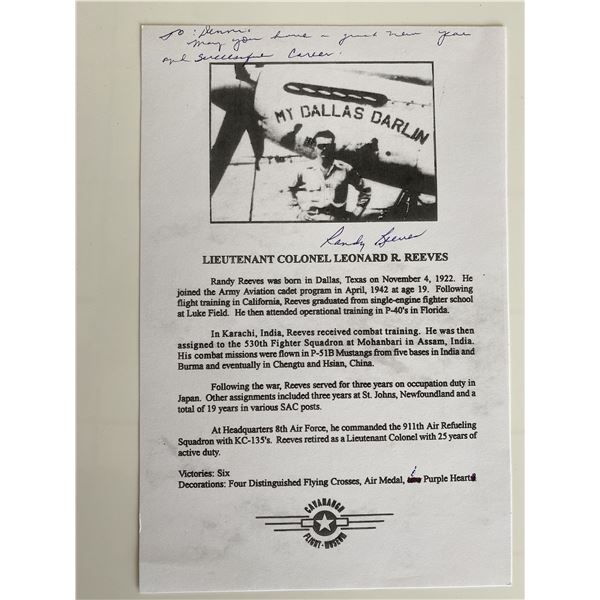 To: Dennis,
May you have a great New Year
and successful career.
MY DALLAS DARLIN
Randy Reeves
LIEUTENANT COLONEL LEONARD R. REEVES
Randy Reeves was born in Dallas, Texas on November 4, 1922. He
joined the Army Aviation cadet program in April, 1942 at age 19. Following
flight training in California, Reeves graduated from single-engine fighter school
at Luke Field. He then attended operational training in P-40's in Florida.
In Karachi, India, Reeves received combat training. He was then
assigned to the 530th Fighter Squadron at Mohanbari in Assam, India.
His combat missions were flown in P-51B Mustangs from five bases in India and
Burma and eventually in Chengtu and Hsian, China.
Following the war, Reeves served for three years on occupation duty in
Japan. Other assignments included three years at St. Johns, Newfoundland and a
total of 19 years in various SAC posts.
At Headquarters 8th Air Force, he commanded the 911th Air Refueling
Squadron with KC-135's. Reeves retired as a Lieutenant Colonel with 25 years of
active duty.
Victories: Six
Decorations: Four Distinguished Flying Crosses, Air Medal, Purple Heart
CAVANAUGH
FLIGHT MUSEUM